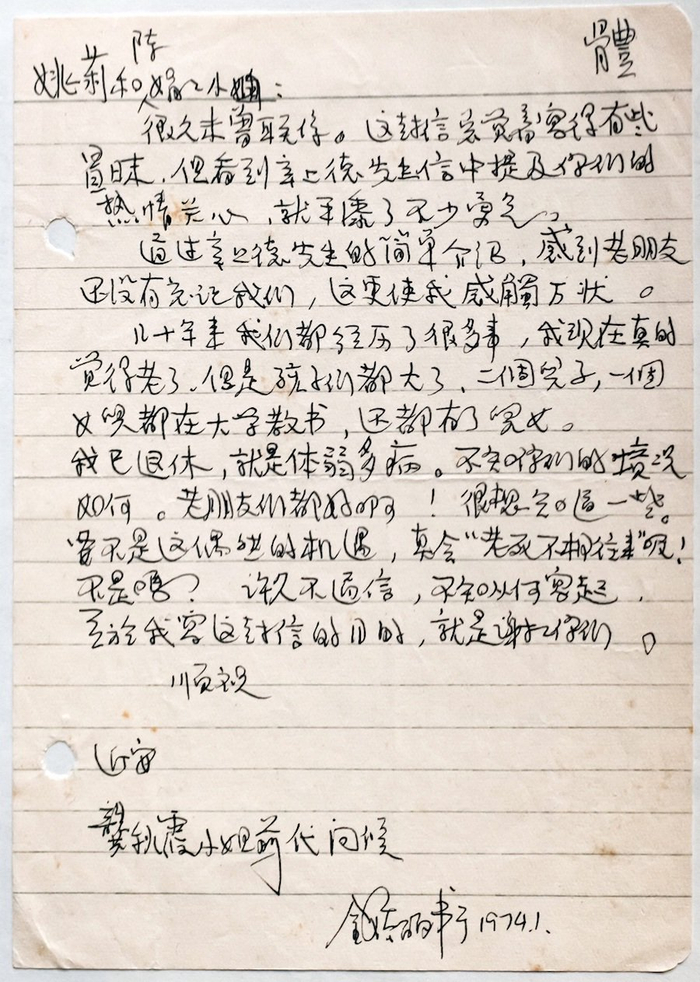 體
陈
姚莉和娟娟小姐：
很久未曾联系。这封信总觉着写得有些
冒昧，但看到辛上德先生信中提及你们的
热情关心，就平添了不少勇气。
通过辛上德先生的简单介绍，感到老朋友
还没有忘记我们，这更使我感触万状。
几十年来我们都经历了很多事，我现在真的
觉得老了，但是孩子们都大了，二個兒子，一個
女兒都在大学教书，还都有了兒女。
我已退休，就是体弱多病。不知你们的境况
如何。老朋友们都好啊！很想知道一些。
要不是这偶然的机遇，真会“老死不相往来”呢！
不是吗？许久不通信，不知从何写起，
至於我写这封信的目的，就是谢谢你们。
顺祝
近安
龔秋霞小姐前代问候
于1974.1.